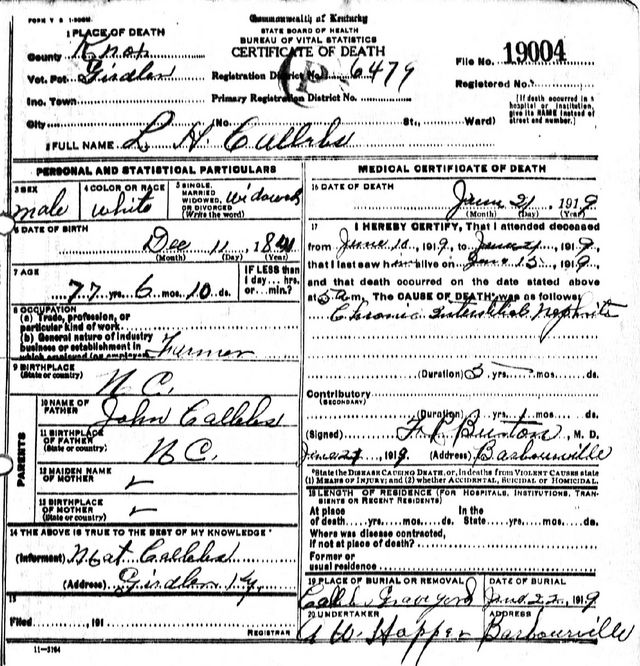 FORM V S 1-500M.
Commonwealth of Kentucky
STATE BOARD OF HEALTH
BUREAU OF VITAL STATISTICS
CERTIFICATE OF DEATH
1 PLACE OF DEATH
County Knox
Vot. Pct. Girdler
Inc. Town
City
Registration District No. 6479
Primary Registration District No.
File No. 19004
Registered No.
(No. St., Ward)
[If death occurred in a hospital or institution, give its NAME instead of street and number.]
2 FULL NAME L H Callebs
PERSONAL AND STATISTICAL PARTICULARS
3 SEX male
4 COLOR OR RACE white
5 SINGLE, MARRIED WIDOWED, OR DIVORCED (Write the word) widowed
6 DATE OF BIRTH
Dec 11 1841
(Month) (Day) (Year)
7 AGE
77 yrs. 6 mos. 10 ds.
IF LESS than 1 day... hrs. or... min.?
8 OCCUPATION
(a) Trade, profession, or particular kind of work.
(b) General nature of industry business or establishment in which employed (or employer) Farmer
9 BIRTHPLACE (State or country) N C.
PARENTS
10 NAME OF FATHER John Callebs
11 BIRTHPLACE OF FATHER (State or country) N C.
12 MAIDEN NAME OF MOTHER
13 BIRTHPLACE OF MOTHER (State or country)
14 THE ABOVE IS TRUE TO THE BEST OF MY KNOWLEDGE
(Informant) Nat Callebs
(Address) Girdler Ky.
15
Filed, 191
REGISTRAR
11-3164
MEDICAL CERTIFICATE OF DEATH
16 DATE OF DEATH
June 21, 1919
(Month) (Day) (Year)
17 I HEREBY CERTIFY, That I attended deceased
from June 10, 1919, to June 21, 1919,
that I last saw him alive on June 15, 1919,
and that death occurred on the date stated above
at 5 am, The CAUSE OF DEATH was as follows
Chronic Interstitial Nephritis
(Duration) 5 yrs. mos. ds.
Contributory
(SECONDARY)
(Duration) yrs. mos. ds.
(Signed) Burton, M. D.
1919 (Address) Barbourville
*State the DISEASE CAUSING DEATH, or, in deaths from VIOLENT CAUSES state
(1) MEANS OF INJURY; and (2) whether ACCIDENTAL, SUICIDAL or HOMICIDAL.
18 LENGTH OF RESIDENCE (FOR HOSPITALS, INSTITUTIONS, TRANSIENTS OR RECENT RESIDENTS)
At place of death yrs. mos. ds. In the State yrs. mos. ds.
Where was disease contracted, if not at place of death?
Former or usual residence
19 PLACE OF BURIAL OR REMOVAL
Graveyard
DATE OF BURIAL
June 22, 1919
20 UNDERTAKER
A W Hopper
ADDRESS
Barbourville